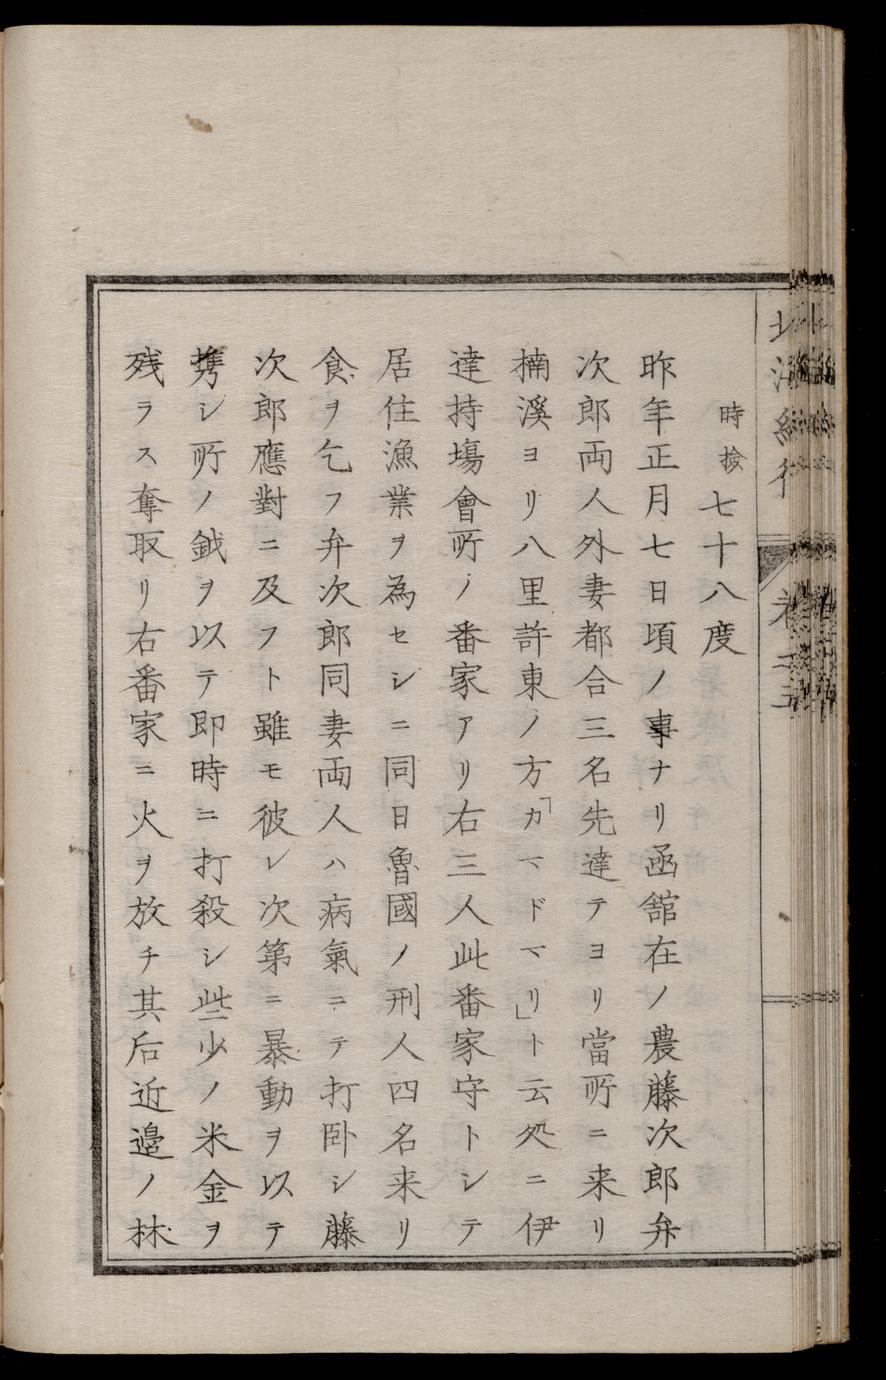 時撿七十八度
昨年正月七日頃ノ事ナリ函舘在ノ農藤次郎弁
次郎両人外妻都合三名先達テヨリ當所ニ来リ
楠溪ヨリ八里許東ノ方「カマドマリ」ト云処ニ伊
達持場會所ノ番家アリ右三人此番家守トシテ
居住漁業ヲ為セシニ同日魯國ノ刑人四名来リ
食ヲ乞フ弁次郎同妻両人ハ病氣ニテ打卧シ藤
次郎應對ニ及フト雖モ彼レ次第ニ暴動ヲ以テ
携シ所ノ鉞ヲ以テ即時ニ打殺シ些少ノ米金ヲ
残ラス奪取リ右番家ニ火ヲ放チ其后近邉ノ林